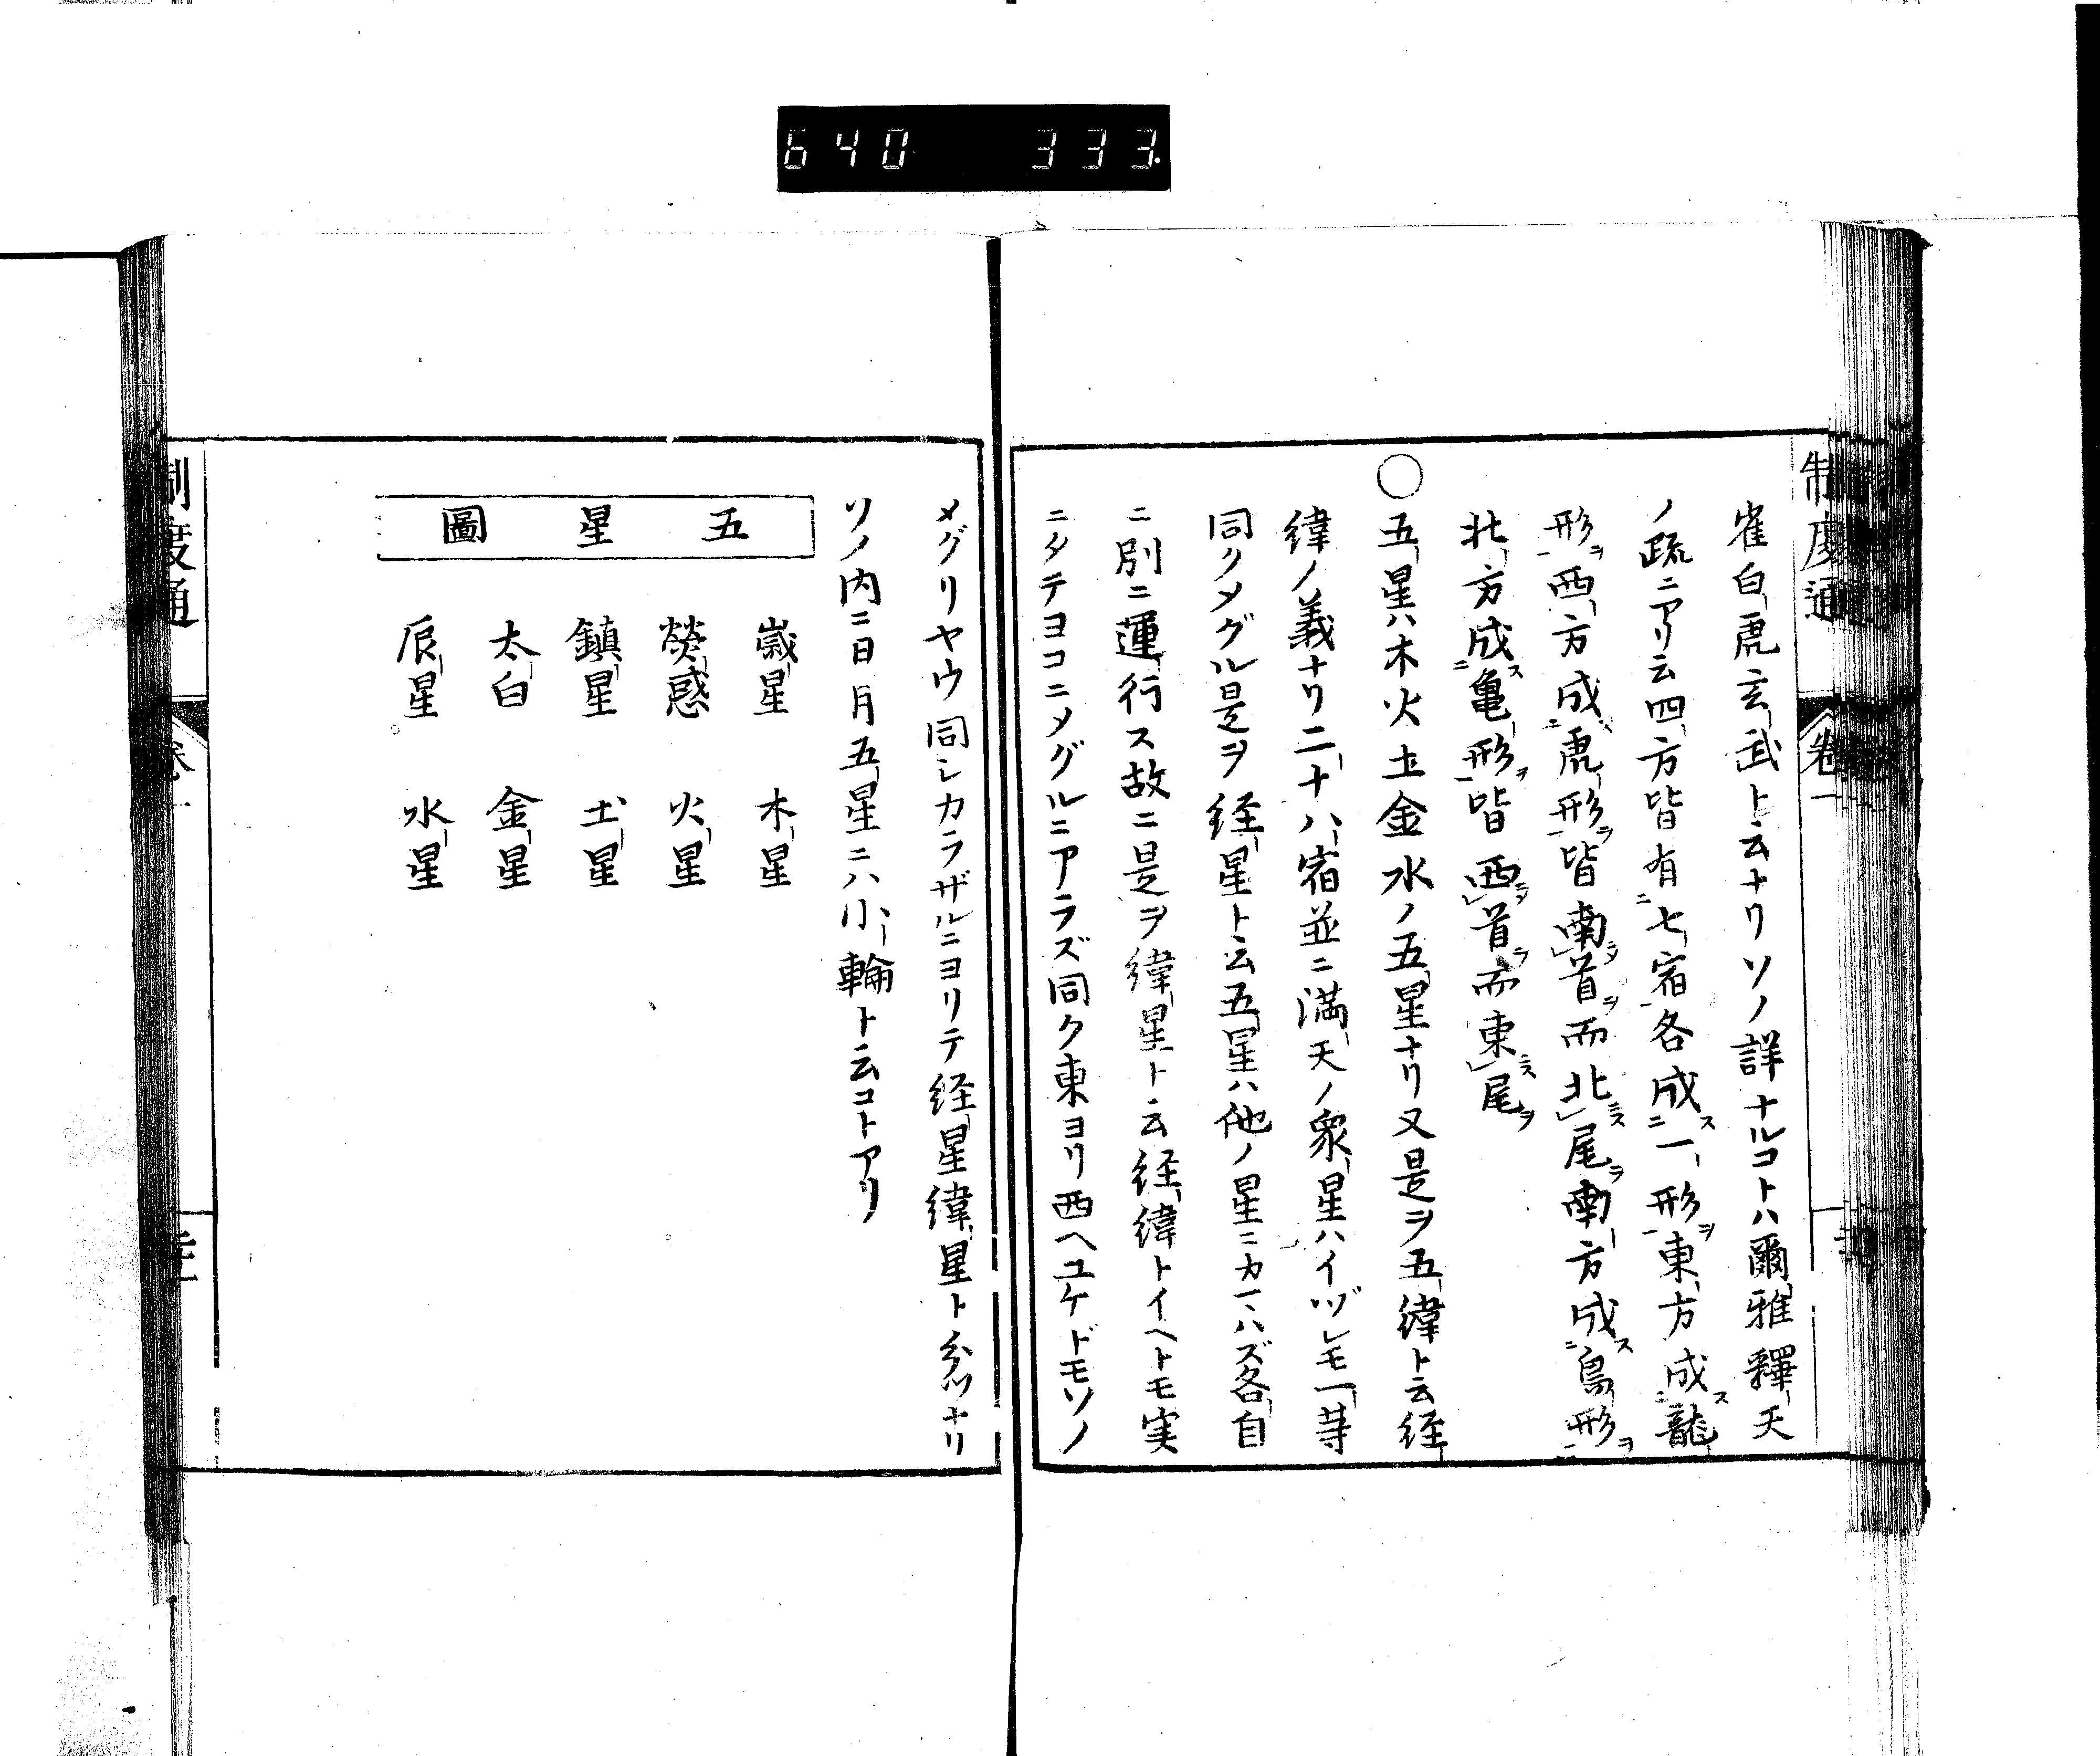 640 333
制度通 卷一
雀白虎玄武ト云ナリソノ詳ナルコトハ爾雅釋天
ノ疏ニアリ云四方皆有七宿各成一形東方成龍
形西方成虎形皆南首而北尾南方成鳥形
北方成亀形皆西首而東尾
○五星ハ木火土金水ノ五星ナリ又是ヲ五緯ト云経
緯ノ義ナリ二十八宿並ニ満天ノ衆星ハイヅレモ一等
同クメグル是ヲ経星ト云五星ハ他ノ星ニカヽハズ各自
ニ別ニ運行ス故ニ是ヲ緯星ト云経緯トイヘトモ実
ニタテヨコニメグルニアラズ同ク東ヨリ西ヘユケドモソノ
メグリヤウ同シカラザルニヨリテ経星緯星ト分ツナリ
ソノ内ニ日月五星ニハ小輪ト云コトアリ
五星圖
歳星 木星
熒惑 火星
鎮星 土星
太白 金星
辰星 水星
制度通 卷一